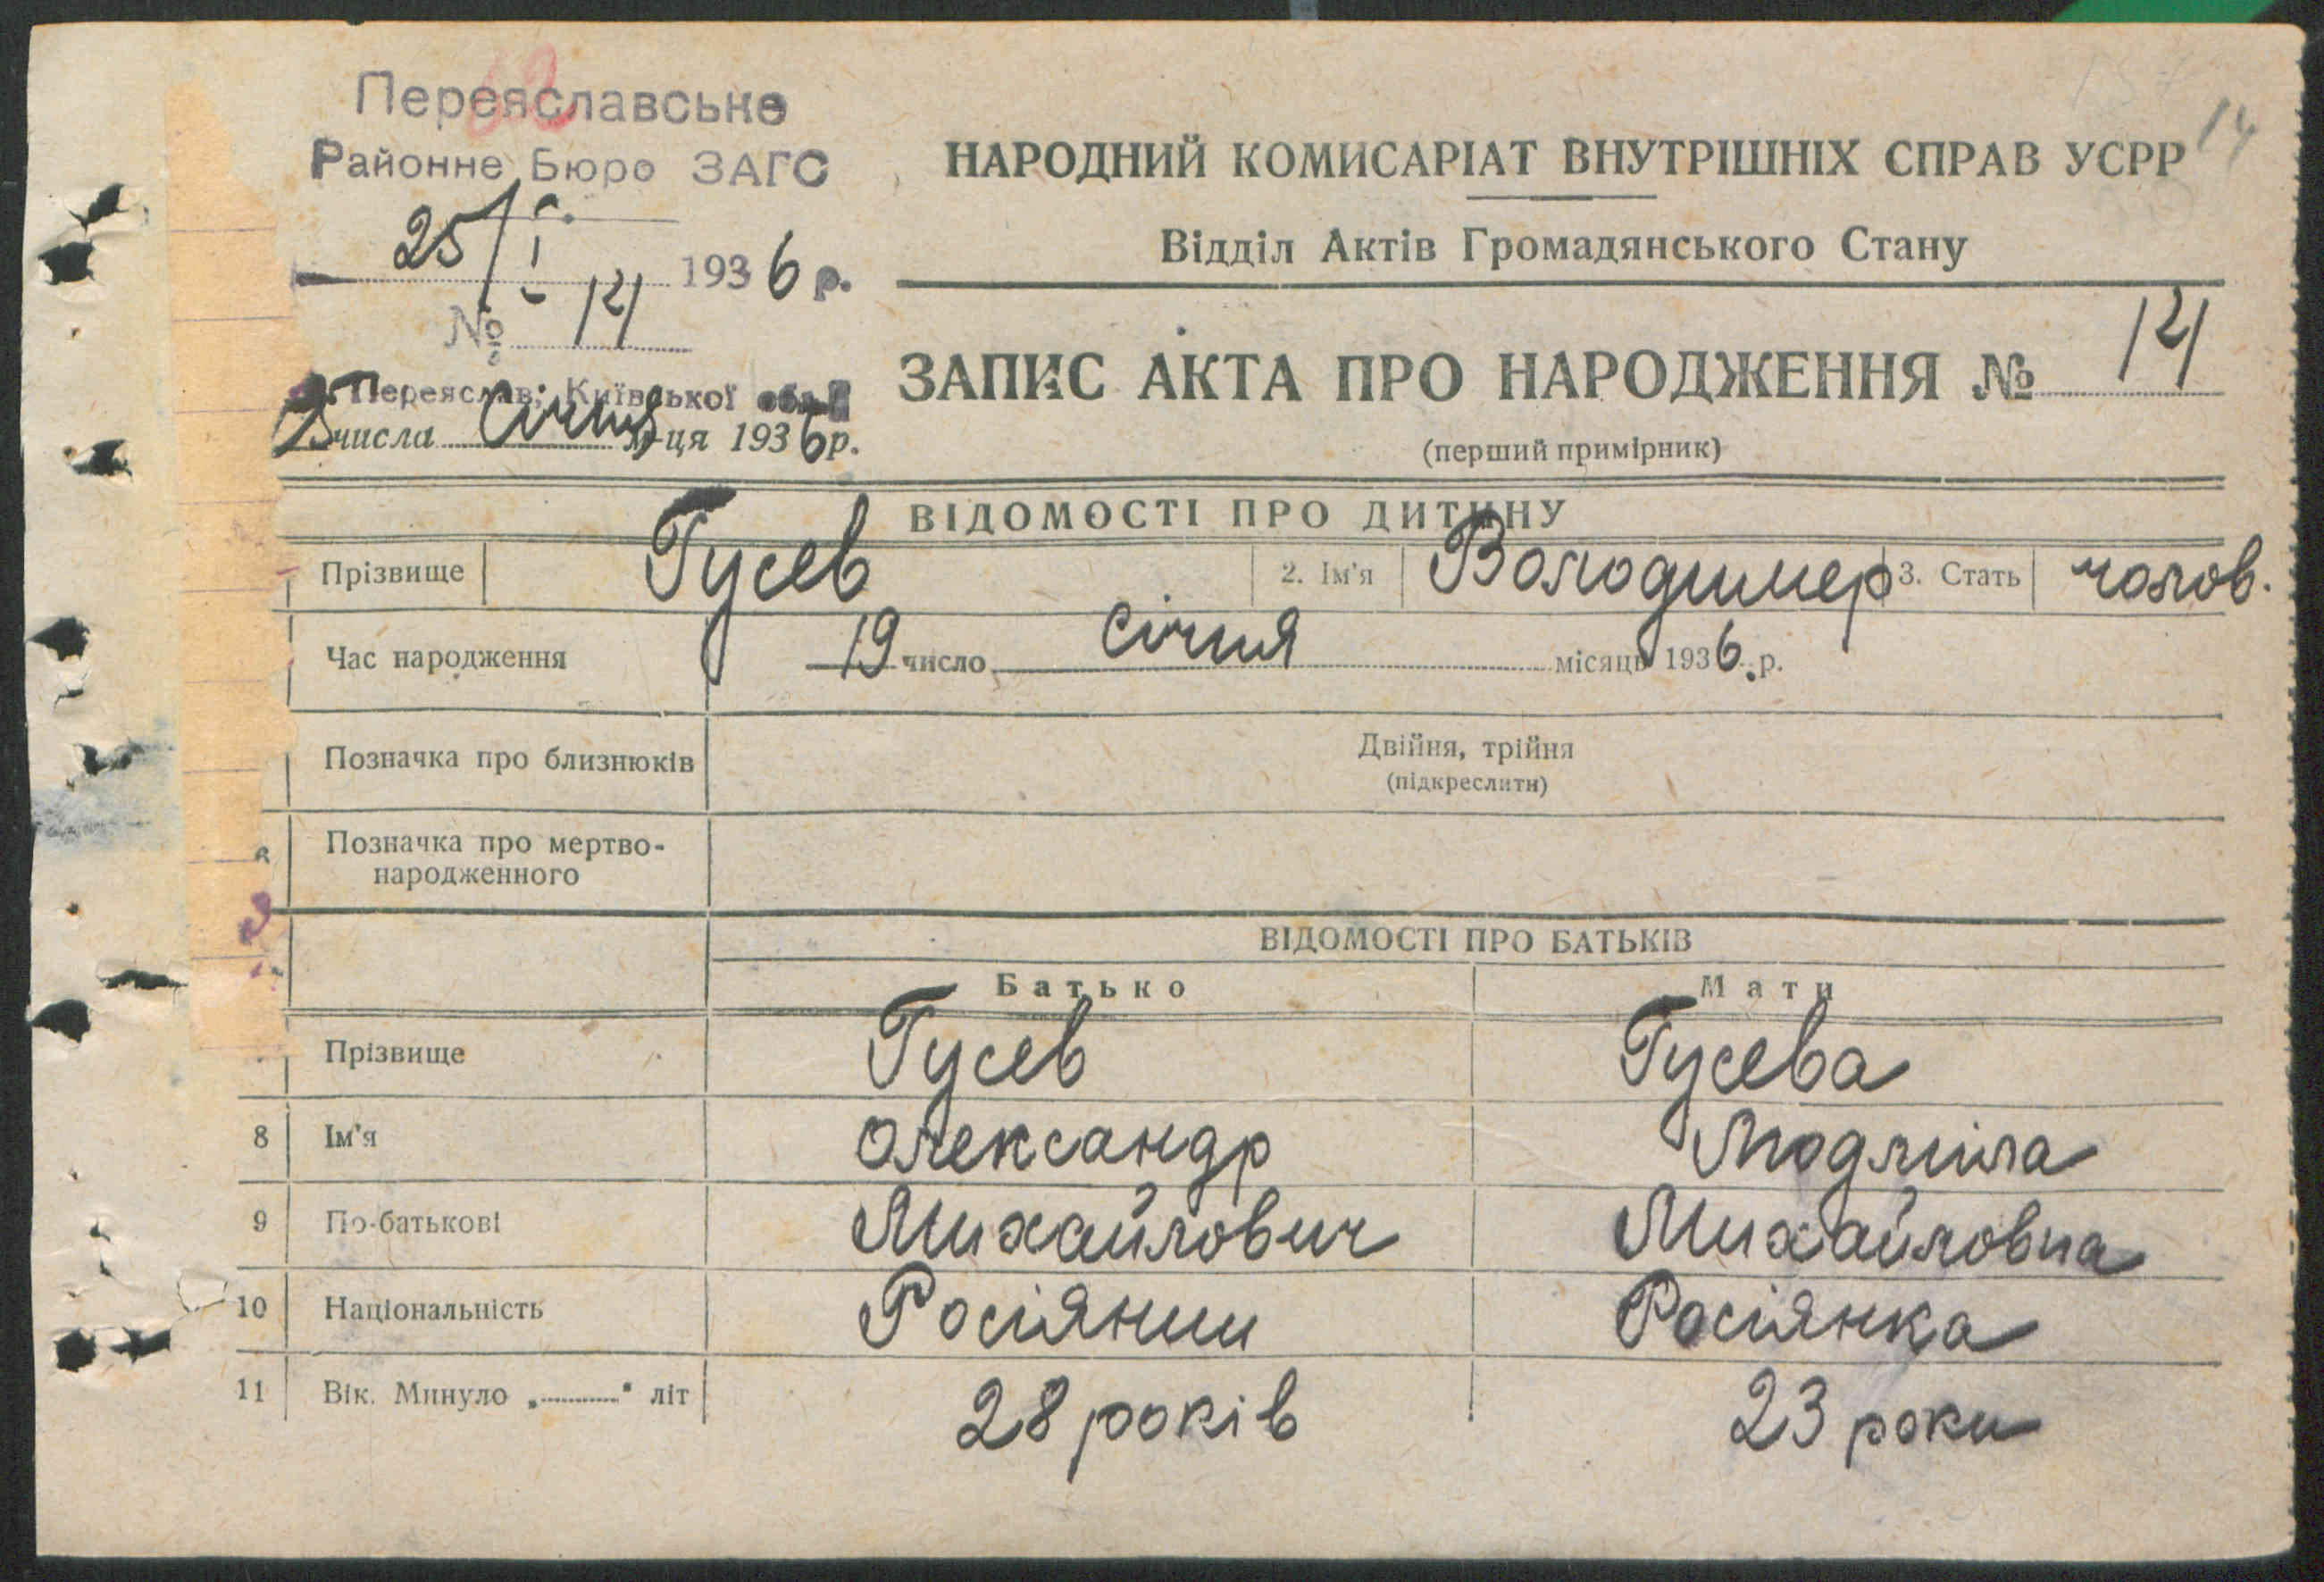 Переяславське
Районне Бюро ЗАГС
25/I 1936 р.
№ 14
м. Переяслав, Київської обл.
25 числа січня м-ця 1936 р.
14
НАРОДНИЙ КОМИСАРІАТ ВНУТРІШНІХ СПРАВ УСРР
Відділ Актів Громадянського Стану
ЗАПИС АКТА ПРО НАРОДЖЕННЯ № 14
(перший примірник)
ВІДОМОСТІ ПРО ДИТИНУ
Прізвище Гусев 2. Ім'я Володимер 3. Стать чолов.
Час народження 19 число січня місяць 1936 р.
Позначка про близнюків Двійня, трійня
(підкреслити)
Позначка про мертво-
народженного
ВІДОМОСТІ ПРО БАТЬКІВ
Батько Мати
Прізвище Гусев Гусева
8 Ім'я Олександр Людмила
9 По-батькові Михайлович Михайловна
10 Національність Росіянин Росіянка
11 Вік. Минуло „..........“ літ 28 років 23 роки